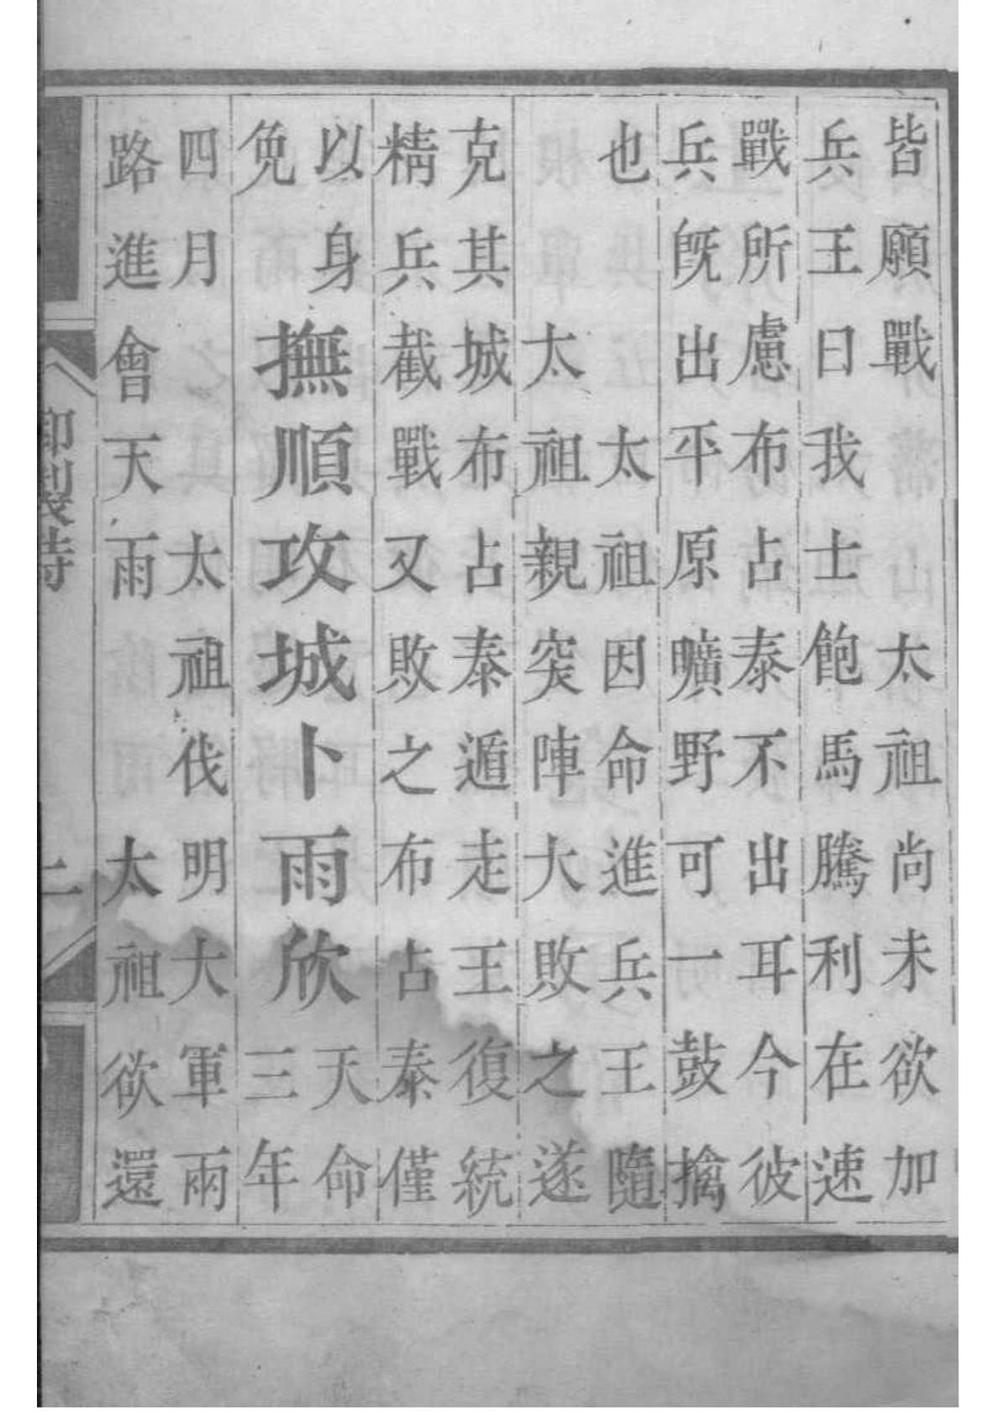 皆願戰　太祖尚未欲加
兵王曰我士飽馬騰利在速
戰所慮布占泰不出耳今彼
兵旣出平原曠野可一鼓擒
也　太祖因命進兵王隨
太祖親突陣大敗之遂
克其城布占泰遁走王復統
精兵截戰又敗之布占泰僅
以身
免
撫順攻城卜雨欣
天命
三年
四月　太祖伐明大軍兩
路進會天雨　太祖欲還
御製詩
二